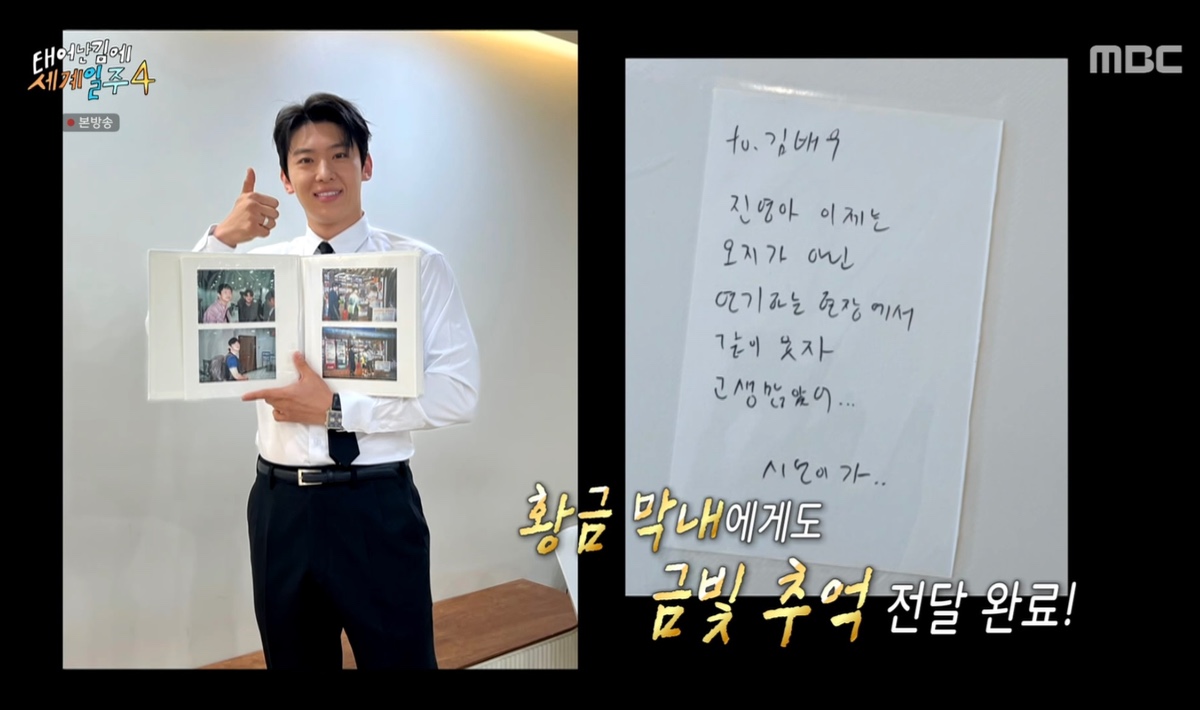 태어난김에
세계일주4
본방송
MBC
to. 김배우
진영아 이제는
오지가 아닌
연기하는 현장에서
같이 못자
고생많았어...
시언이가..
황금 막내에게도
금빛 추억 전달 완료!